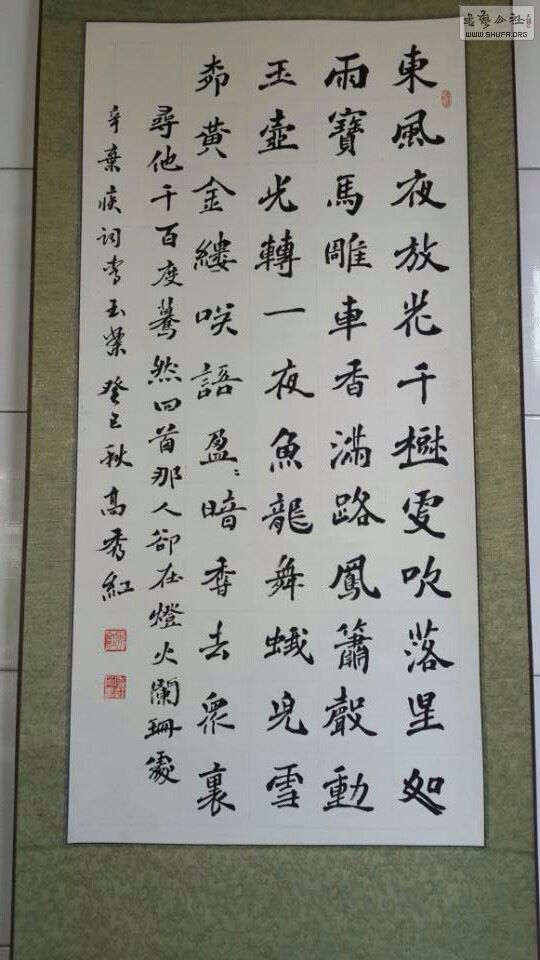 東風夜放花千樹更吹落星如
雨寶馬雕車香滿路鳳簫聲動
玉壺光轉一夜魚龍舞蛾兒雪
柳黃金縷咲語盈〻暗香去眾裏
尋他千百度驀然回首那人卻在燈火闌珊處
辛棄疾詞青玉案癸巳秋高秀紅
書藝公社
WWW.SHUFA.ORG